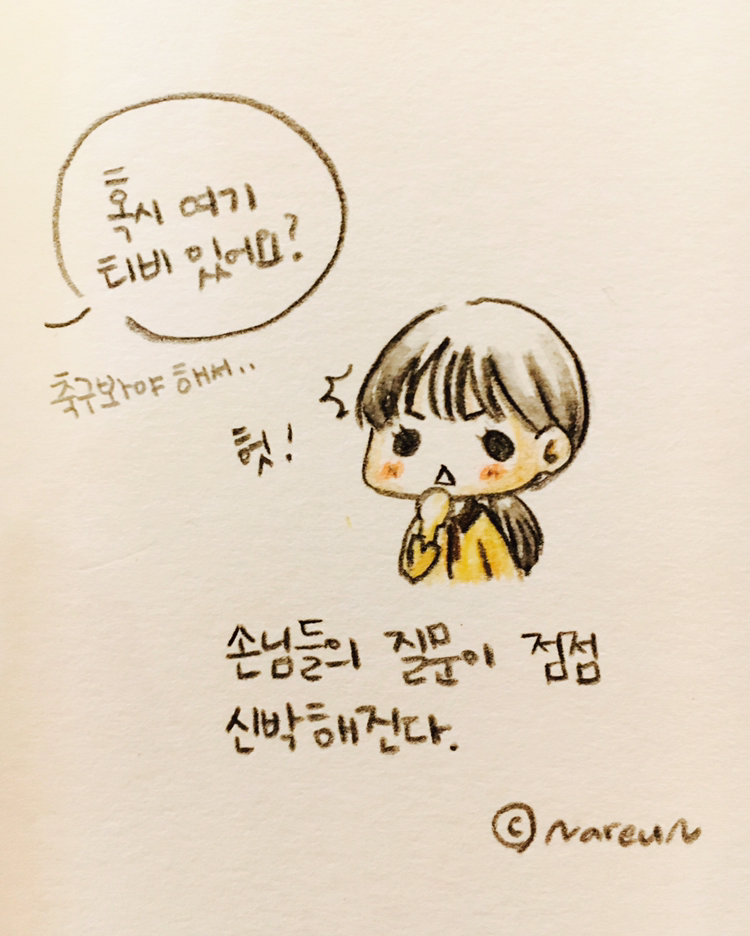 혹시 여기
티비 있어요?
축구봐야 해서..
헛!
손님들의 질문이 점점
신박해진다.
© Nareun